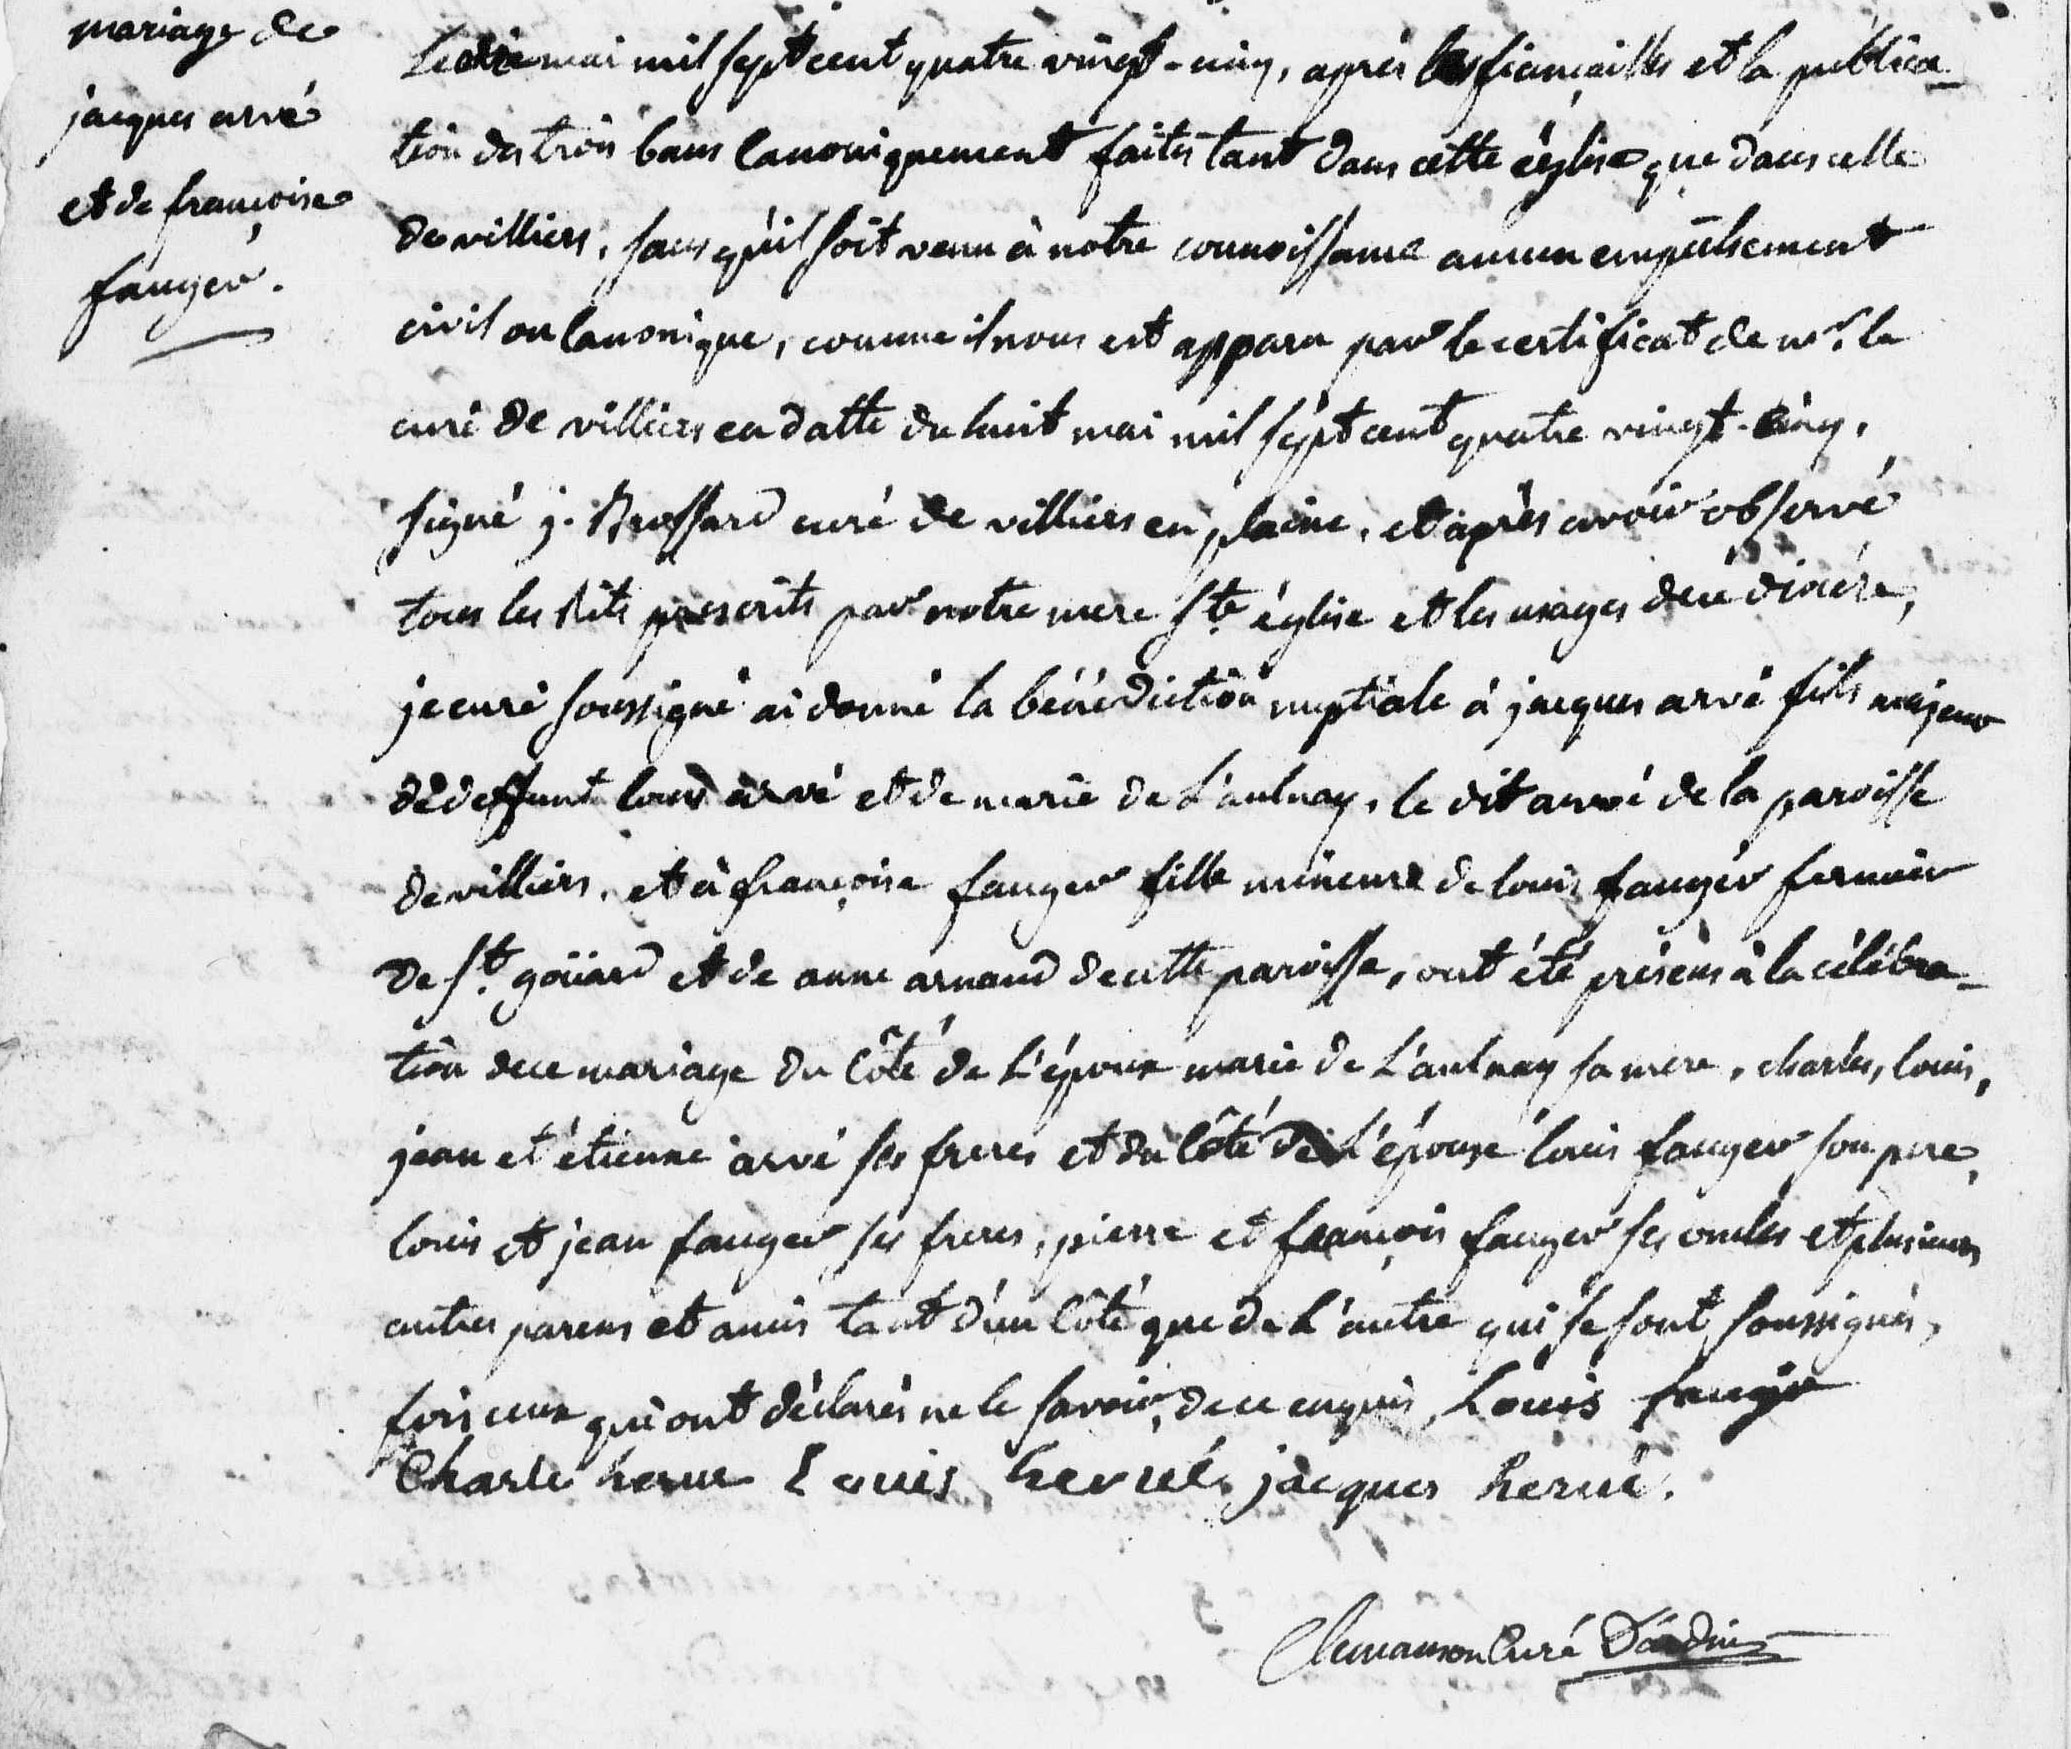 mariage de
jacques arvé
et de françoise
fauger.
Le dix mai mil sept cent quatre vingt-cinq, après les fiançailles et la publica-
tion des trois bans canoniquement faites tant dans cette église que dans celle
de villiers, sans qu'il soit venu à notre connoissance aucun empêchement
civil ou canonique, comme il nous est apparu par le certificat de mr. le
curé de villiers en datte du huit mai mil sept cent quatre vingt-cinq,
signé j. Brossard curé de villiers en plaine, et après avoir observé
tous les Rits prescrits par notre mere ste. église et les usages de ce diocése,
je curé soussigné ai donné la bénédiction nuptiale à jacques arvé fils majeur
de deffunt louis arvé et de marie de L'aulnay, le dit arvé de la paroisse
de villiers, et à françoise fauger fille mineure de louis fauger fermier
de st. goüard et de anne arnaud de cette paroisse, ont été présens à la célébra-
tion de ce mariage du côté de l'époux marie de L'aulnay sa mere, charles, louis,
jean et étienne arvé ses freres et du côté de L'épouse louis fauger son pere,
louis et jean fauger ses freres, pierre et françois fauger ses oncles et plusieurs
autres parens et amis tant d'un côté que de L'autre qui se sont soussignés,
fors ceux qui ont déclarés ne le savoir, de ce enquis, Louis faugér
Charle herve Louis hervé jacques hervé.
Clemanson Curé